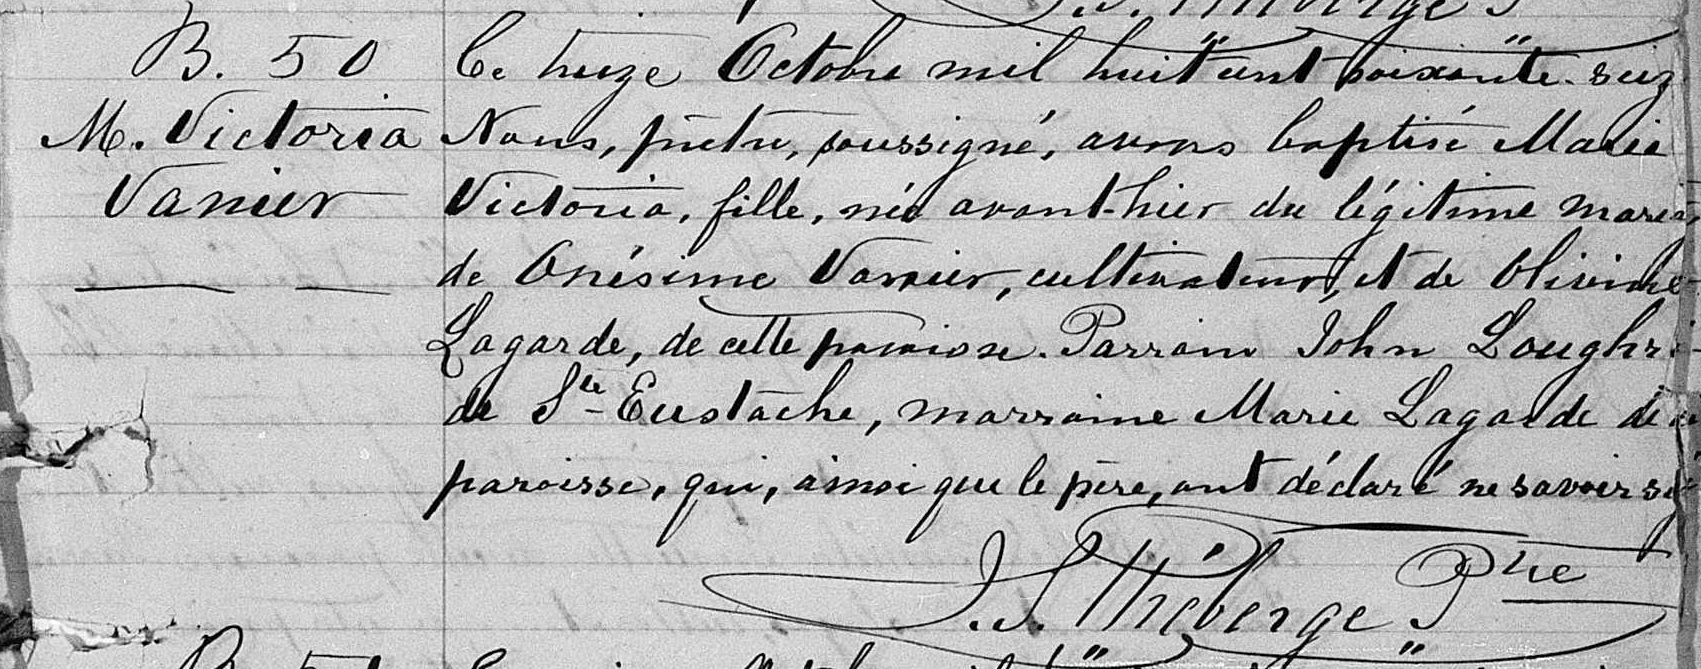 B. 50
M. Victoria
Vanier
Ce treize Octobre mil huit cent soixante-seiz
Nous, prêtre, soussigné, avons baptisé Marie
Victoria, fille, née avant-hier du légitime maria
de Onésime Vanier, cultivateur, et de Olivine
Lagarde, de cette paroisse. Parrain John Loughr
de Ste-Eustache, marraine Marie Lagarde de
paroisse, qui, ainsi que le père, ont déclaré ne savoir sig
J. S. Théberge Ptre